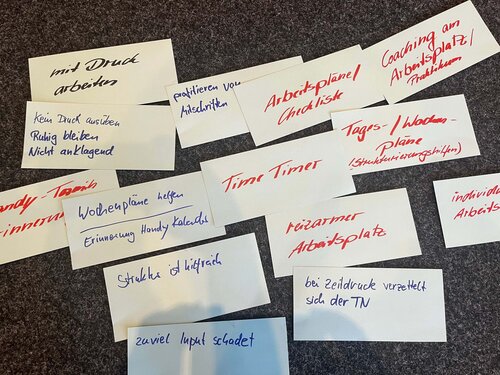 mit Druck
arbeiten
Kein Druck ausüben
Ruhig bleiben
Nicht anklagend
profitieren von
Mitschriften
Arbeitspläne/
Checkliste
Coaching am
Arbeitsplatz/
Praktikum
Tages-/Wochen-
pläne
(Strukturierungshilfen)
Time Timer
andy-Termin
-innerun
Wochenpläne helfen
Erinnerung Handy Kalender
reizarmer
Arbeitsplatz
individu
Arbeits
Struktur ist hilfreich
bei Zeitdruck verzettelt
sich der TN
zuviel Input schadet